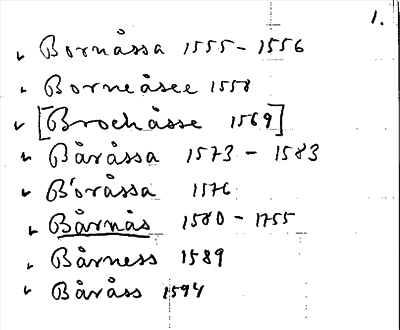 1.
Bornåssa 1555-1556
Borneåsee 1558
[Brochåsse 1569]
Båråssa 1573 - 1583
Boråssa 1576
Bårnås 1580 - 1755
Bårness 1589
Båråss 1594